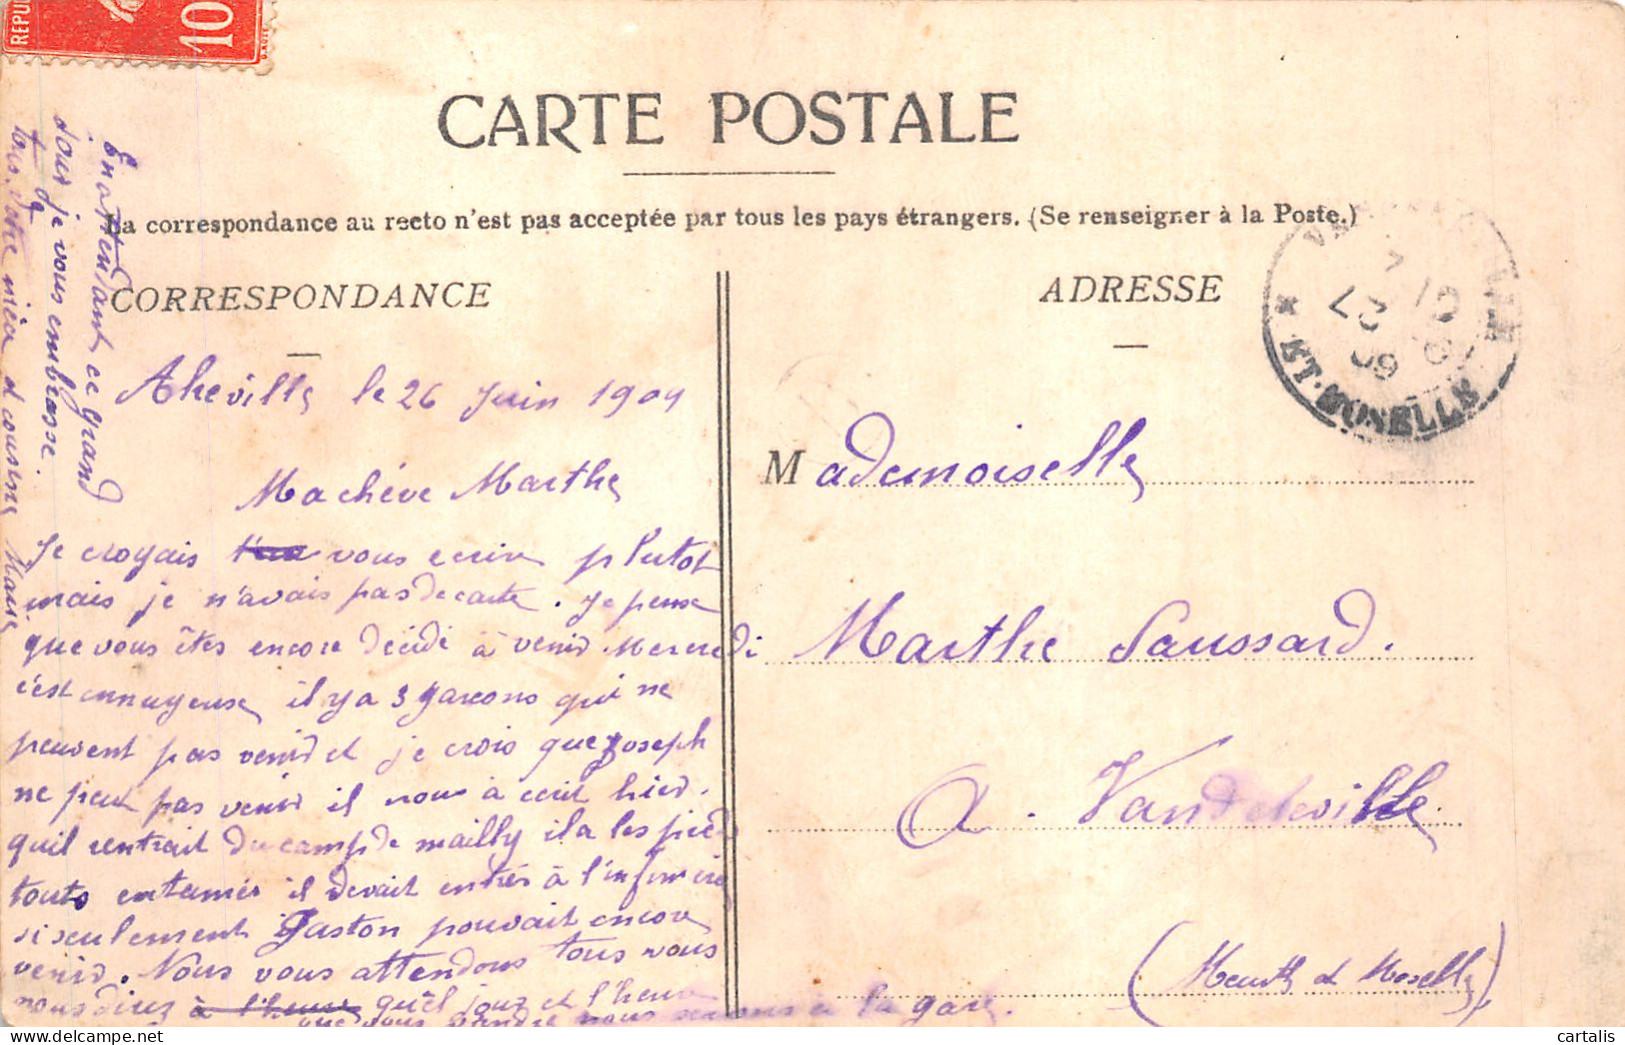 REPU
10
CARTE POSTALE
La correspondance au recto n'est pas acceptée par tous les pays étrangers. (Se renseigner à la Poste.)
CORRESPONDANCE
ADRESSE
ET-MOSELLE
Akeville le 26 Juin 1909
Ma chére Marthe
Je croyais vous ecrire plutot
mais je n'avais pas de carte. Je pense
que vous êtes encore décidé à venir Mercredi
c'est ennuyeuse il y a 3 garcons qui ne
peuvent pas venir et je crois que Joseph
ne peut pas venir il nous à ecrit hier.
quil rentrait du camp de mailly il a les pieds
touts entamés il devait entrés à l'infirmerie
si seulement Gaston pouvait encore
venir. Nous vous attendons tous vous
nous direz à l'heure quel jour et l'heure
que vous nous serons à la gare.
En attendant ce grand
jour je vous embrasse
tous. Votre nièce et cousine Marie
Mademoiselle
Marthe Saussard.
A. Vandeleville
(Meurth et Moselle)
cartalis